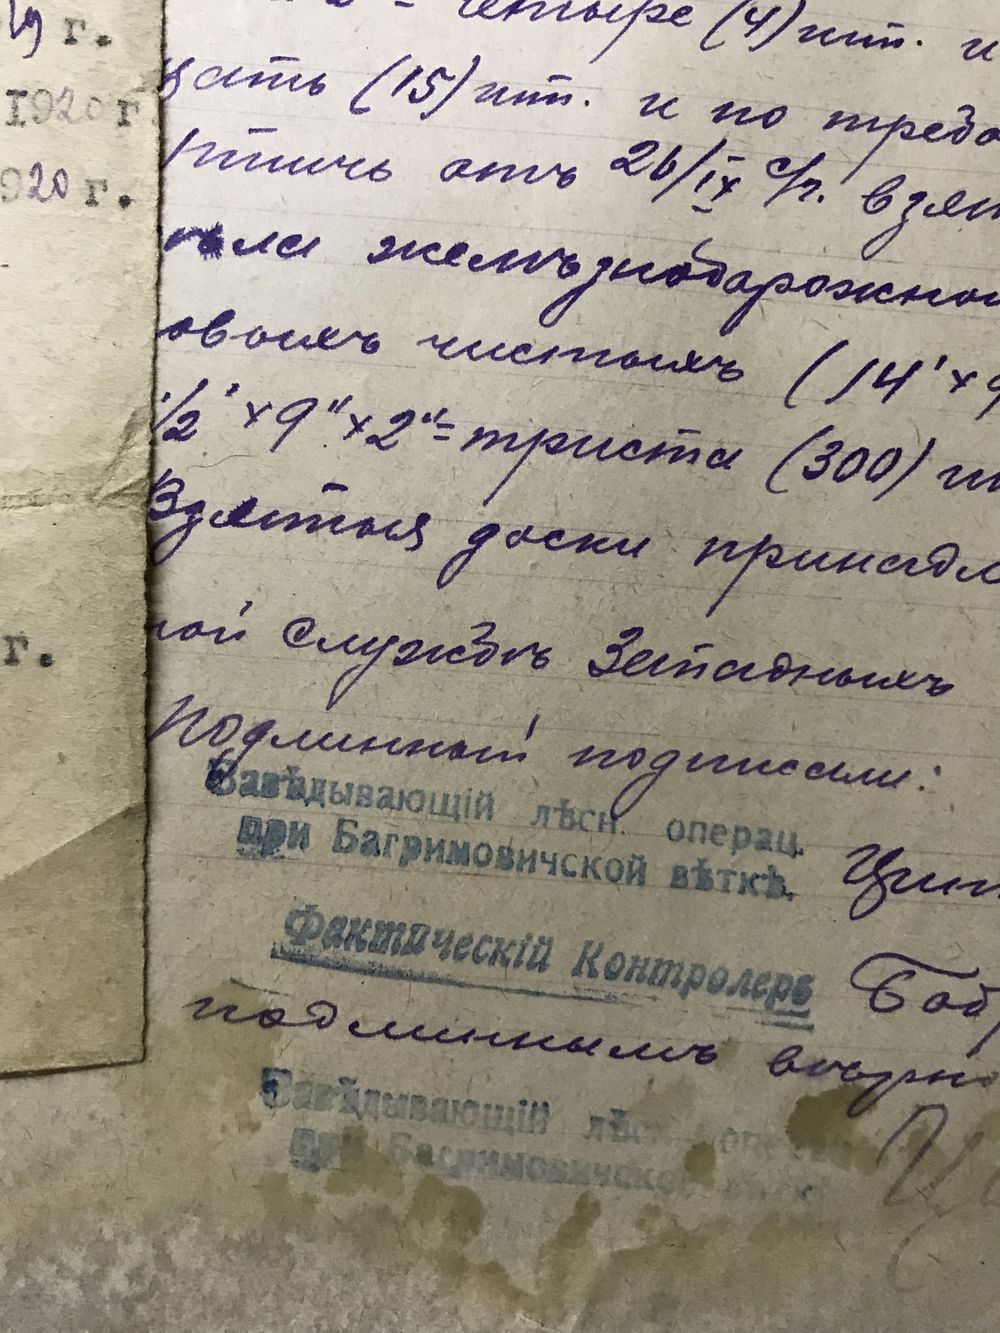 г.
1920 г.
920 г.
г.
четыре (4) шт. и
цать (15) шт. и по требо
Птичь отъ 26/IX с/г. взят
желѣзнодорожной
овыхъ чистыхъ (14' × 9
1/2' × 9" × 2" = триста (300) шт
Взятыя доски принадл
ной службѣ Западныхъ
Подлинный подписали:
Завѣдывающій лѣсн. операц.
при Багримовичской вѣткѣ.
Фактическій Контролеръ
подлиннымъ вѣрно
Завѣдывающій лѣсн. операц.
при Багримовичской вѣткѣ